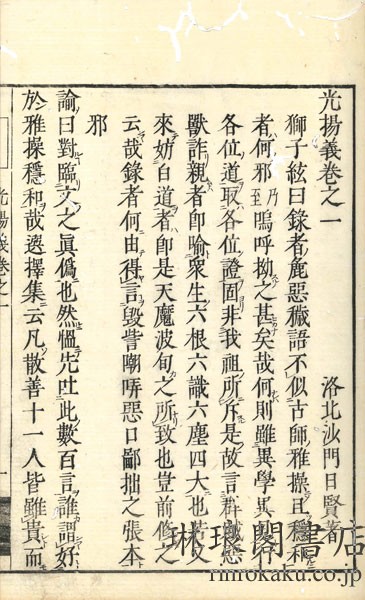 光揚義卷之一
洛北沙門日賢著
獅子絃曰錄者麁惡穢語不似古師雅操且穩和
者何邪乃至嗚呼拗之甚矣哉何則雖異學異
各位道取各位證固非我祖所斥是故言群賊惡
獸詐親者即喻衆生六根六識六塵四大也若又
來妨白道者即是天魔波旬之所致也豈前修之
云哉錄者何由得言毀訾嘲哢惡口鄙拙之張本
邪
諭曰對臨文之眞僞也然慍先吐此數百言誰謂好
於雅操穩和哉選擇集云凡散善十一人皆雖貴而
光揚義卷之一
一
琳琅閣書店
rinrokaku.co.jp